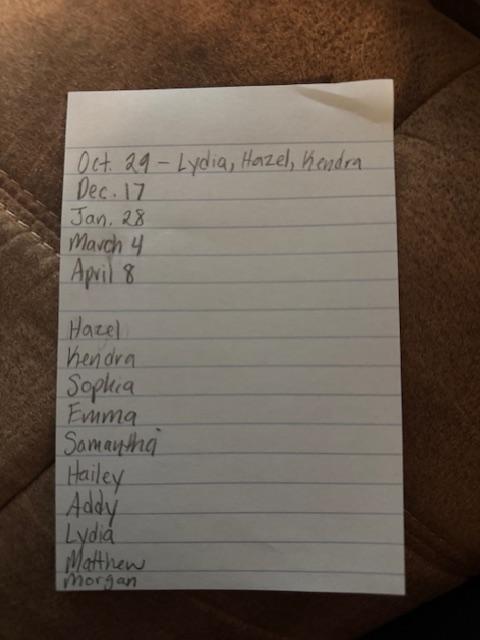 Oct. 29 - Lydia, Hazel, Kendra
Dec. 17
Jan. 28
March 4
April 8
Hazel
Kendra
Sophia
Emma
Samantha
Hailey
Addy
Lydia
Matthew
Morgan